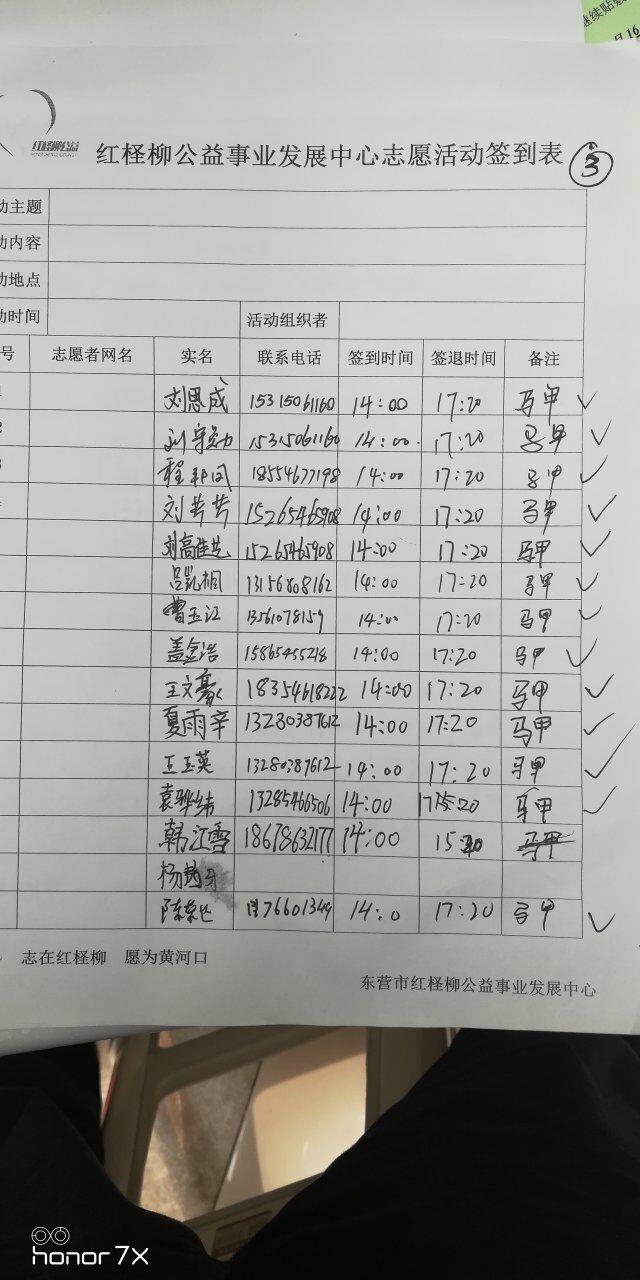 继续贴
月16
红柽柳公益
红柽柳公益事业发展中心志愿活动签到表 3
动主题
动内容
动地点
动时间 活动组织者
号 志愿者网名 实名 联系电话 签到时间 签退时间 备注
刘恩成 15315061160 14:00 17:20 马甲 ✓
刘宇勐 15315061160 14:00 17:20 马甲 ✓
程邦国 18554677198 14:00 17:20 马甲 ✓
刘芳芳 15265465908 14:00 17:20 马甲 ✓
刘高佳艺 15265465908 14:00 17:20 马甲 ✓
吕凯桐 13156808162 14:00 17:20 马甲 ✓
曹玉江 13561078159 14:00 17:20 马甲 ✓
盖金浩 15865455218 14:00 17:20 马甲 ✓
王文豪 18354618222 14:00 17:20 马甲 ✓
夏雨辛 13280387612 14:00 17:20 马甲 ✓
王玉英 13280387612 14:00 17:20 马甲 ✓
袁骅纬 13285466506 14:00 17:20 马甲 ✓
韩江雪 18678632177 14:00 马甲
杨
陈 14:0 17:20 马甲 ✓
志在红柽柳 愿为黄河口
东营市红柽柳公益事业发展中心
honor 7X